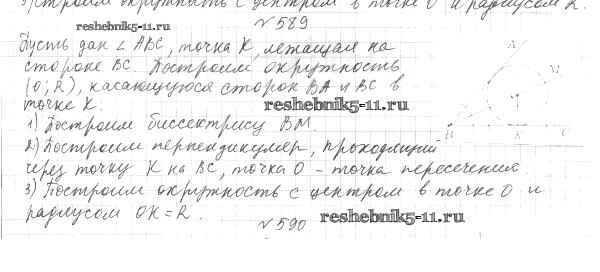 строим окружность с центром в точке О и радиусом R.
№ 589
reshebnik5-11.ru
Пусть дан ∠ ABC, точка K, лежащая на
стороне BC. Построим окружность
(O; R), касающуюся сторон BA и BC в
точке K.
reshebnik5-11.ru
1) Построим биссектрису BM.
2) Построим перпендикуляр, проходящий
через точку K на BC, точка O - точка пересечения.
3) Построим окружность с центром в точке O и
радиусом OK = R.
reshebnik5-11.ru
№ 590
A
M
B
K
C